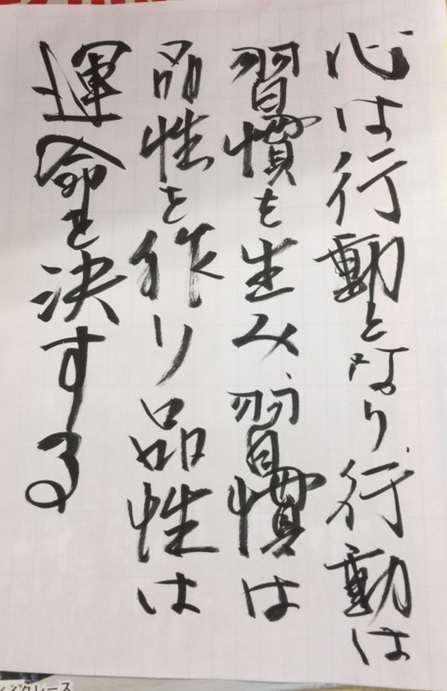 心は行動となり、行動は
習慣を生み、習慣は
品性を作り品性は
運命を決する
ングレース